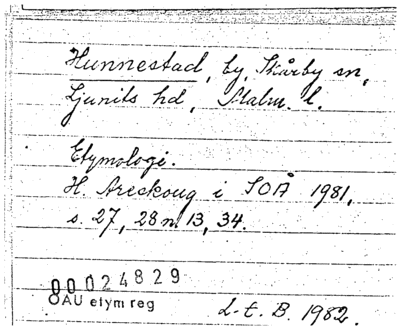 Hunnestad, by, Skårby sn,
Ljunits hd, Malm. l.
Etymologi.
H. Areskoug i SOÅ 1981,
s. 27, 28 n 13, 34.
00024829
OAU etym reg
L-t. B. 1982.